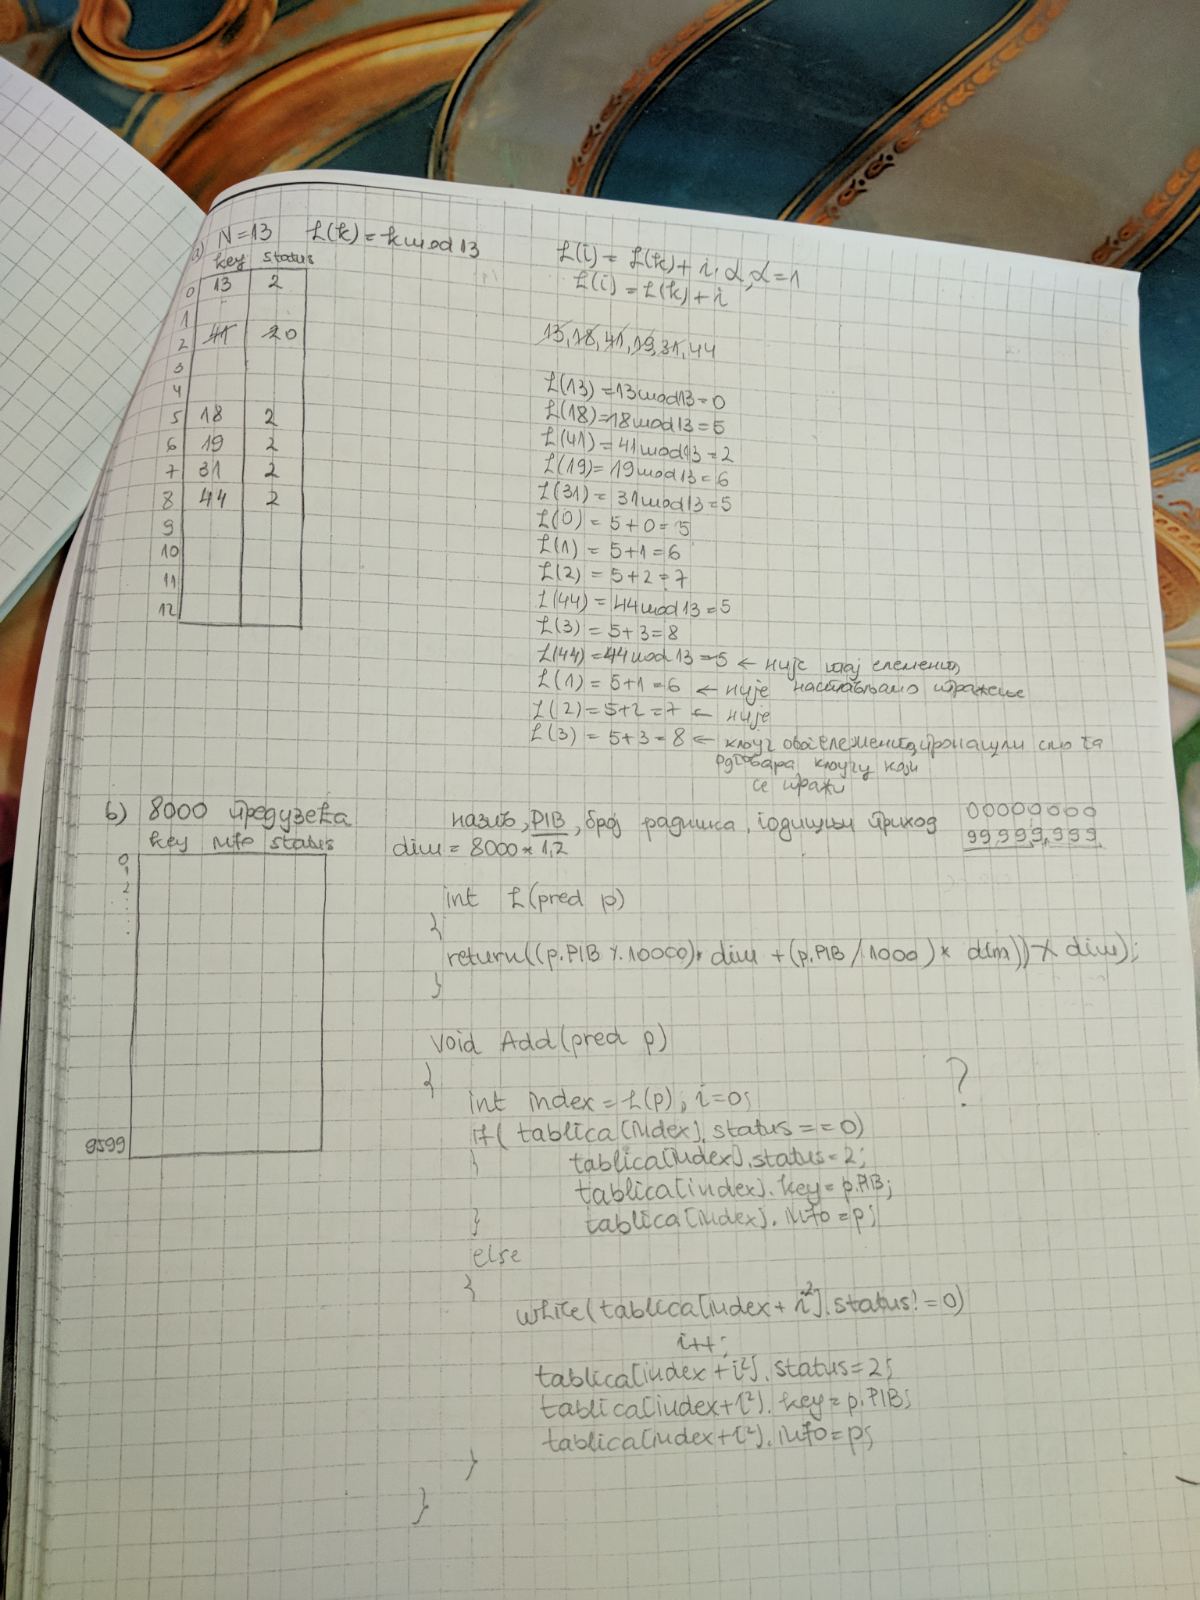 а) N=13 h(k)=k mod 13
key status
0 13 2
1
2 41 20
3
4
5 18 2
6 19 2
7 31 2
8 44 2
9
10
11
12
h(i) = h(k)+i·α, α=1
h(i) = h(k)+i
13, 18, 41, 19, 31, 44
h(13) = 13 mod 13 = 0
h(18) = 18 mod 13 = 5
h(41) = 41 mod 13 = 2
h(19) = 19 mod 13 = 6
h(31) = 31 mod 13 = 5
h(0) = 5+0 = 5
h(1) = 5+1 = 6
h(2) = 5+2 = 7
h(44) = 44 mod 13 = 5
h(3) = 5+3 = 8
h(44) = 44 mod 13 = 5 ← није тај елемент,
h(1) = 5+1 = 6 ← није настављамо тражење
h(2) = 5+2 = 7 ← није
h(3) = 5+3 = 8 ← кључ овог елемента, пронашли смо га
одговара кључу који
се тражи
б) 8000 предузећа
key info status
0
1
2
9599
назив, PIB, број радника, годишњи приход
00000000
99,999,999
dim = 8000 * 1,2
int h(pred p)
{
return((p.PIB % 10000)* dim + (p.PIB / 1000) * dim)) % dim);
}
void Add(pred p)
{
int index = h(p), i=0;
?
if( tablica[index].status == 0)
{ tablica[index].status = 2;
tablica[index].key = p.PIB;
} tablica[index].info = p;
else
{
while(tablica[index + i²].status != 0)
i++;
tablica[index + i²].status = 2;
tablica[index+i²].key = p.PIB;
tablica[index+i²].info = p;
}
}